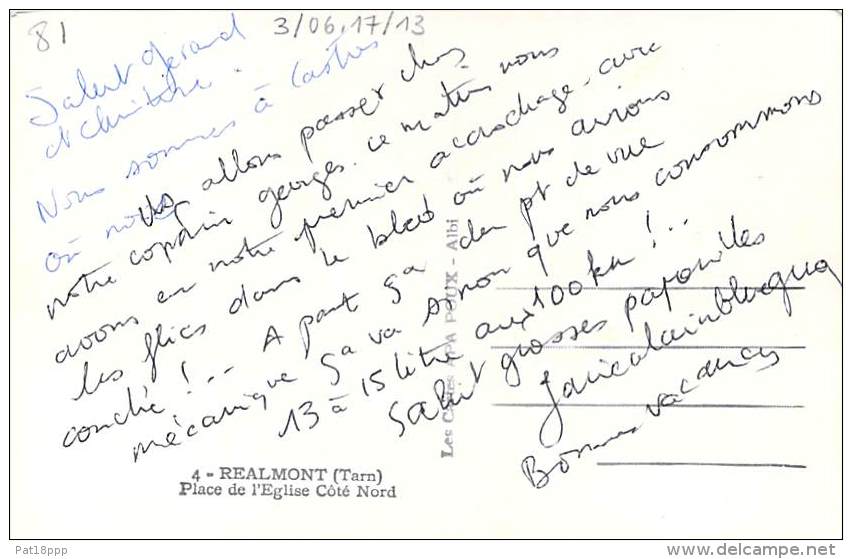 81
3/06.17/13
Salut Gérard
et Christine.
Nous sommes à Castres
où nous allons passer chez
notre copain georges. ce matin nous
avons eu notre premier accrochage avec
les flics dans le bled où nous avions
couché!... A part ça du pt de vue
mécanique ça va sinon que nous consommons
13 à 15 litre aux 100 km!...
Salut grosses papouilles
Bonnes vacances
Les Cartes APA POUX - Albi
4 - REALMONT (Tarn)
Place de l'Eglise Côté Nord
Pat18ppp
www.delcampe.net